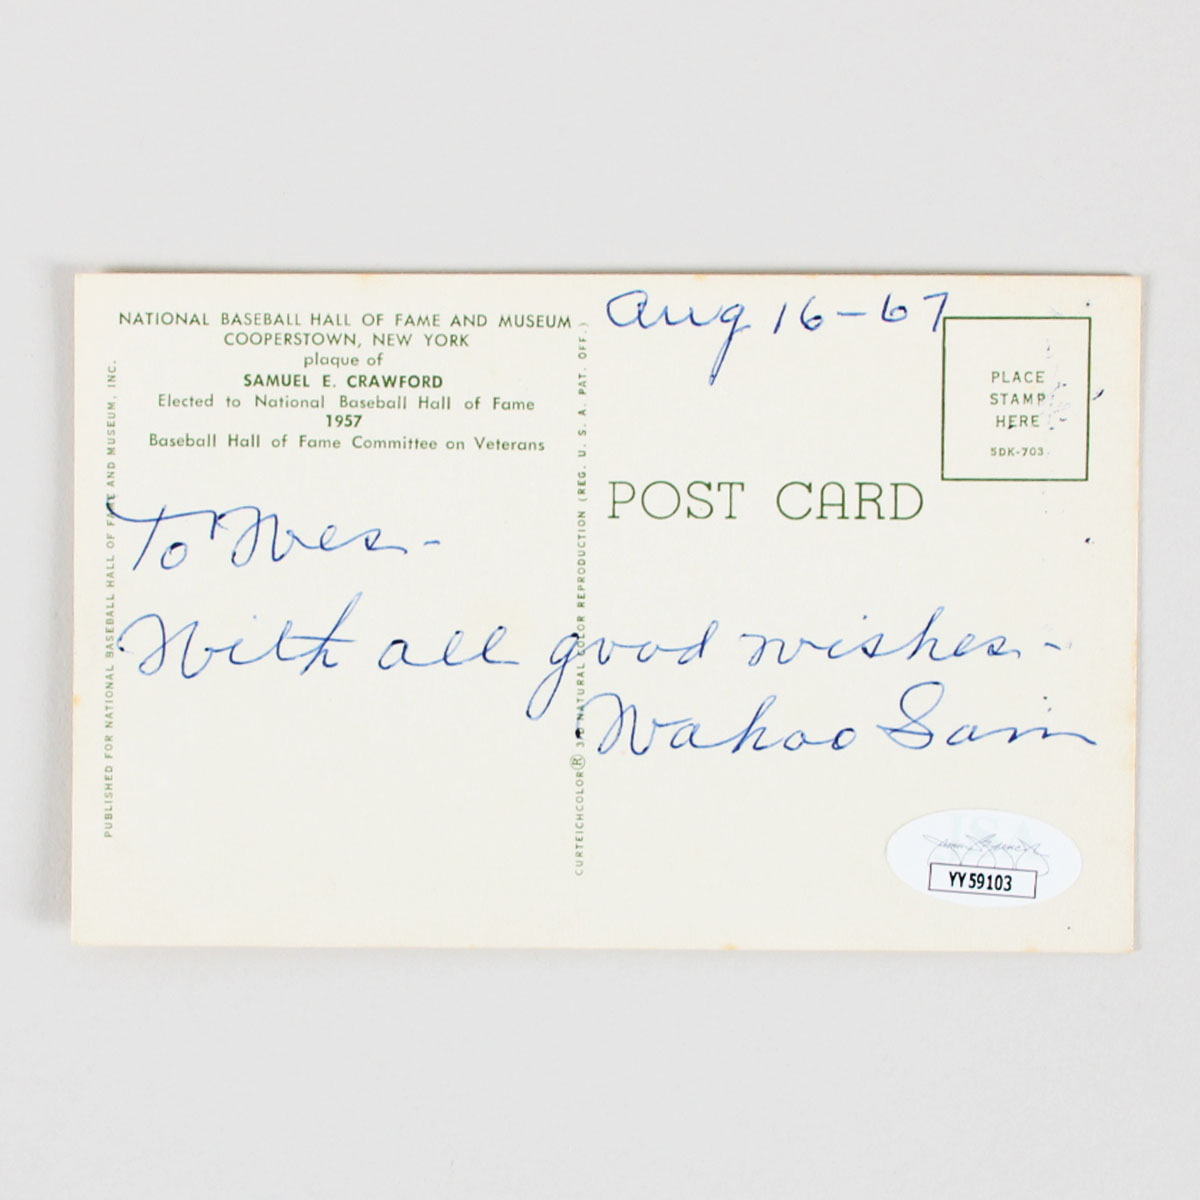 NATIONAL BASEBALL HALL OF FAME AND MUSEUM
COOPERSTOWN, NEW YORK
plaque of
SAMUEL E. CRAWFORD
Elected to National Baseball Hall of Fame
1957
Baseball Hall of Fame Committee on Veterans
PUBLISHED FOR NATIONAL BASEBALL HALL OF FAME AND MUSEUM, INC.
CURTEICHCOLOR® 3-D NATURAL COLOR REPRODUCTION (REG. U. S. A. PAT. OFF.)
Aug 16-67
PLACE
STAMP
HERE
5DK-703
POST CARD
To Wes-
With all good wishes-
Wahoo Sam
JSA
YY59103